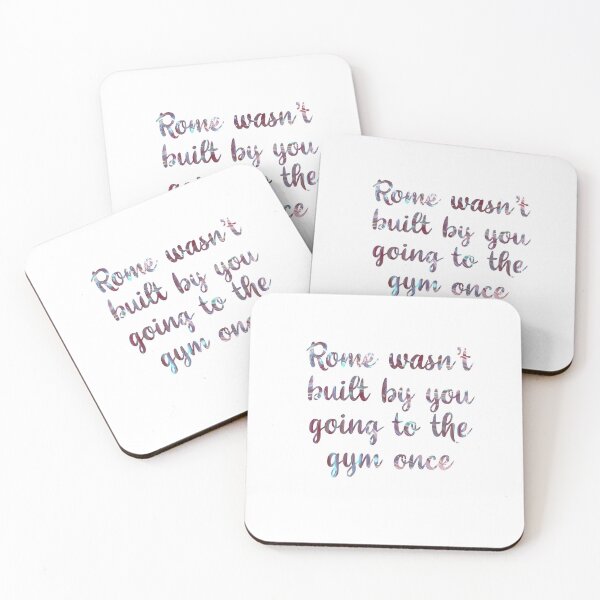 Rome wasn't
built by you
the
once
Rome wasn't
built by you
going to the
gym once
Rome wasn't
built by you
going to the
gym
Rome wasn't
built by you
going to the
gym once